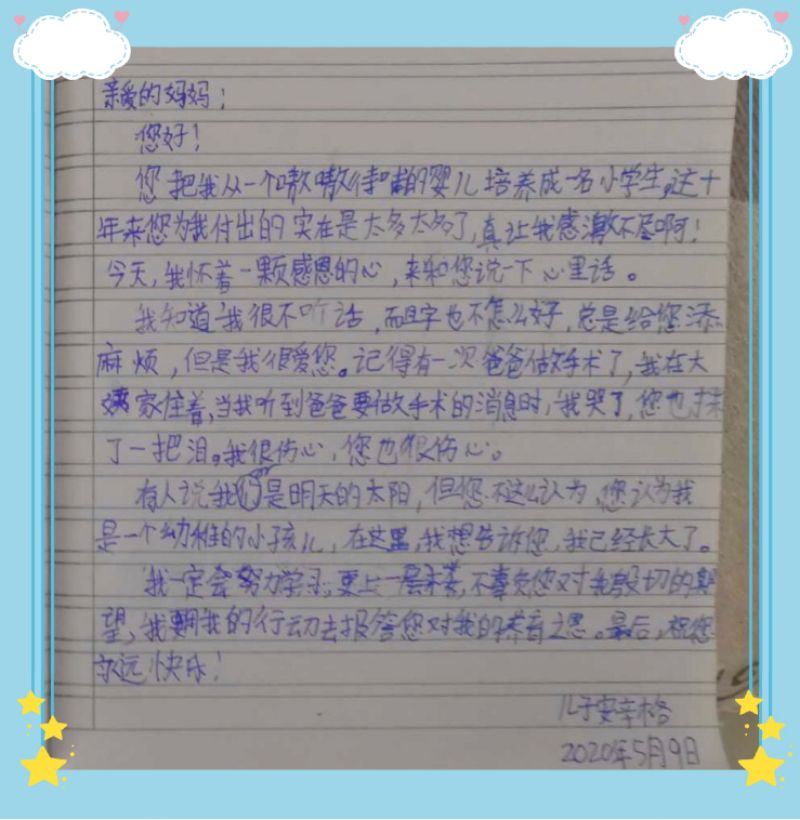 亲爱的妈妈：
您好！
您把我从一个嗷嗷待哺的婴儿培养成一名小学生,这十
年来您为我付出的实在是太多太多了,真让我感激不尽啊!
今天,我怀着一颗感恩的心,来和您说一下心里话。
我知道我很不听话,而且字也不怎么好,总是给您添
麻烦,但是我很爱您。记得有一次爸爸做手术了,我在大
家住着,当我听到爸爸要做手术的消息时,我哭了,您也抹
了一把泪。我很伤心,您也很伤心。
有人说我们是明天的太阳,但您不这么认为,您认为我
是一个幼稚的小孩儿,在这里,我想告诉您,我已经长大了。
我一定会努力学习,更上一层楼,不辜负您对我殷切的期
望,我要用我的行动去报答您对我的养育之恩。最后,祝您
永远快乐!
儿子安辛格
2020年5月9日